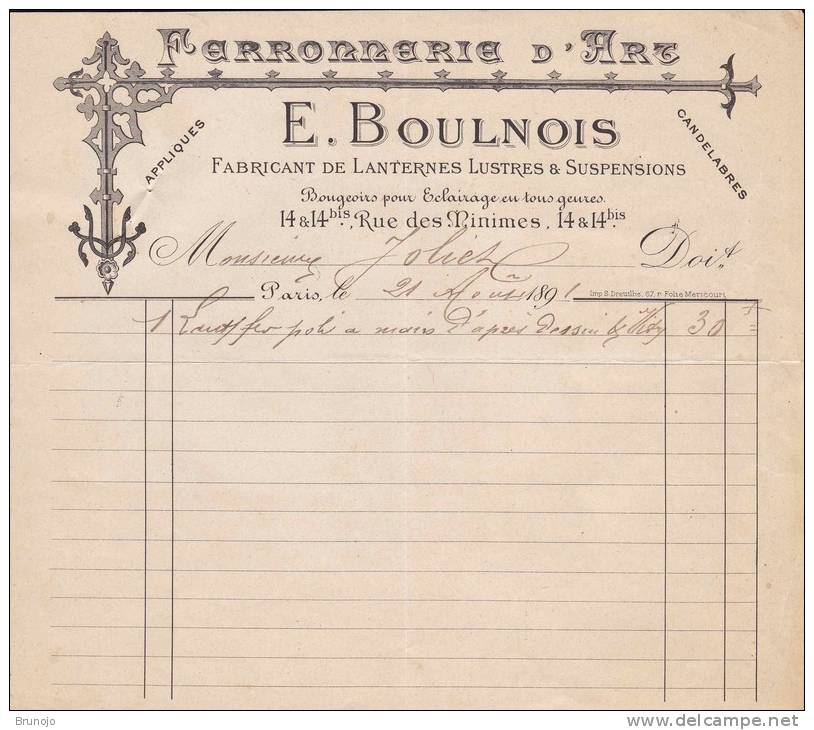 Ferronnerie d'Art
APPLIQUES
CANDELABRES
E. Boulnois
Fabricant de Lanternes Lustres & Suspensions
Bougeoirs pour Eclairage en tous genres
14 & 14 bis, Rue des Minimes, 14 & 14 bis
Monsieur Joliet Doit
Paris, le 21 Août 1891
Imp. S. Dreuilhe, 67, r. Folie Méricourt
1 fer poli a main d'après dessin 30 =
Brunojo
delcampe.net